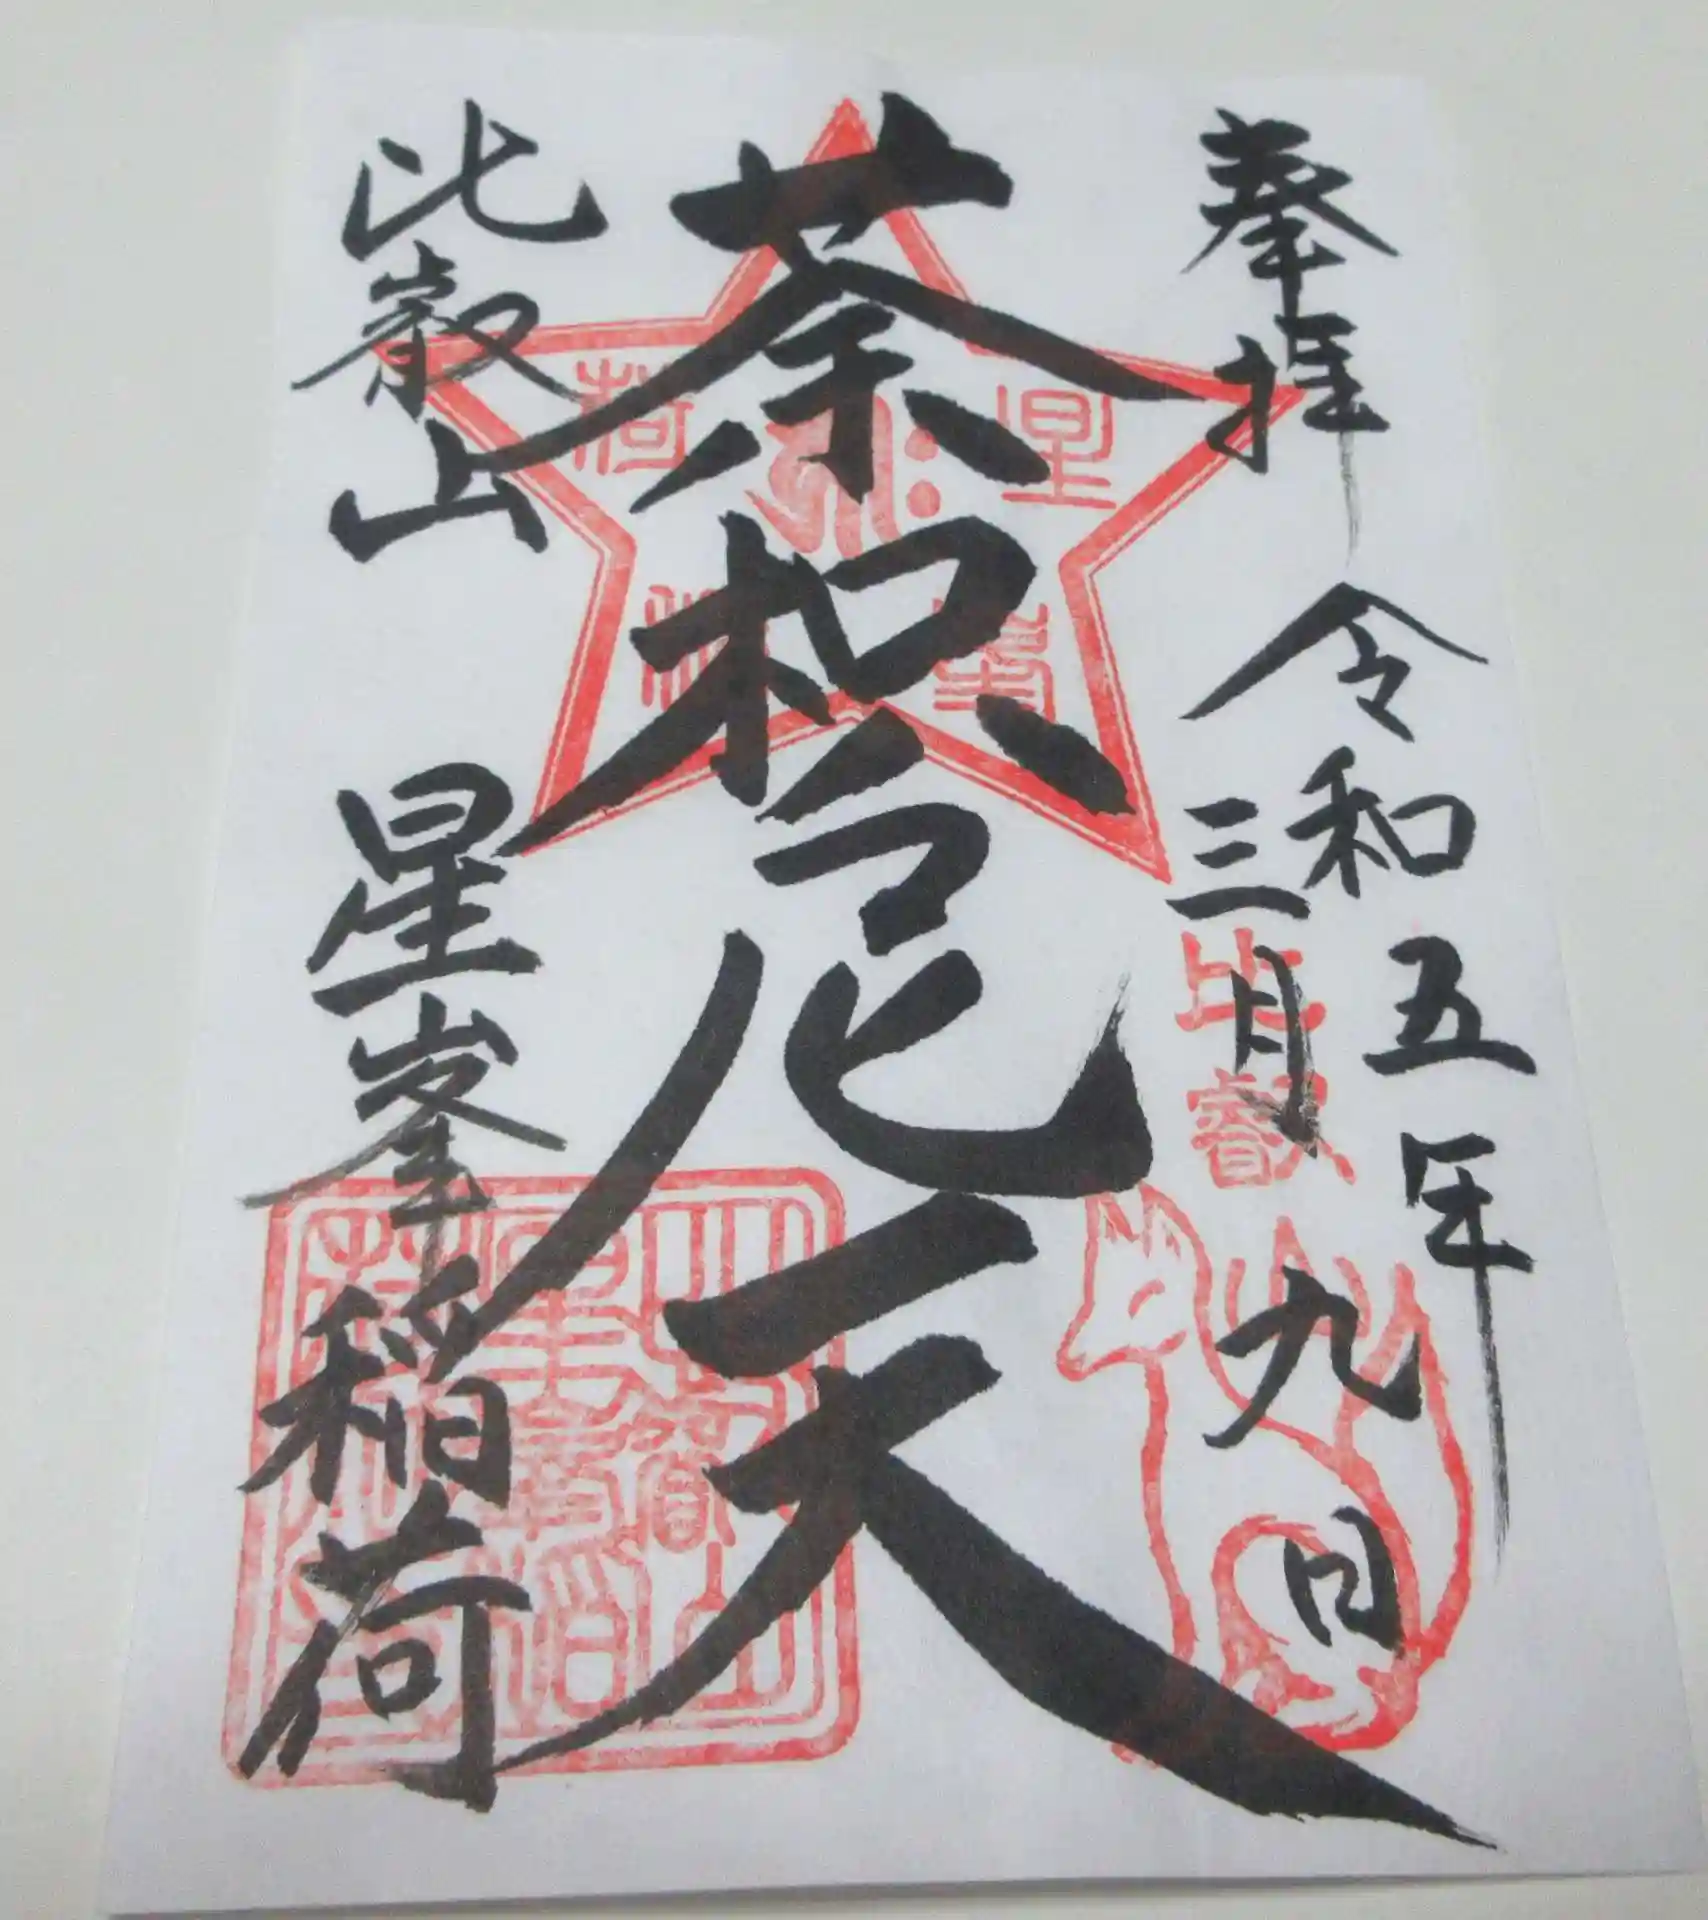 奉拝
令和五年
三月九日
荼枳尼天
比叡山
星峯稲荷
星峯稲荷
比叡山